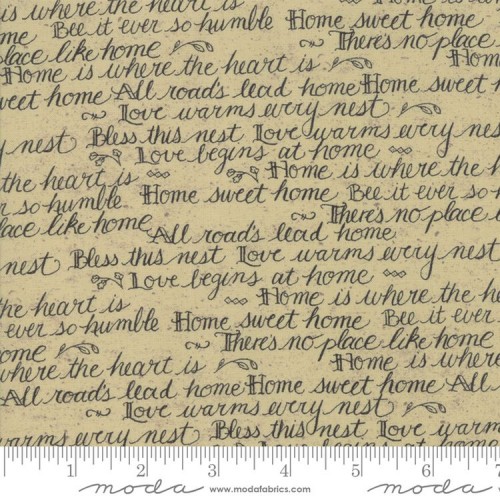 is where the heart is Home is where
me Bee it ever so humble Home sweet home
place like home There's no place
Home is where the heart is Home
weet home All road's lead home Home sweet h
Love warms every nest
y nest Bless this nest Love warms every nes
Love begins at home Home is where
the heart is Home is where the h
r so humble Home sweet home Bee it ever so
lace like home There's no place i
All road's lead home
nest Bless this nest Love warms every nest
Love begins at home
the heart is Home is where the he
ever so humble Home sweet home Bee it ever
ome There's no place like home
where the heart is Home is where
All road's lead home Home sweet home All
Love warms every nest
warms every nest Bless this nest Love w
Love begins at home
1 2 3 4 5 6 7
moda www.modafabrics.com moda